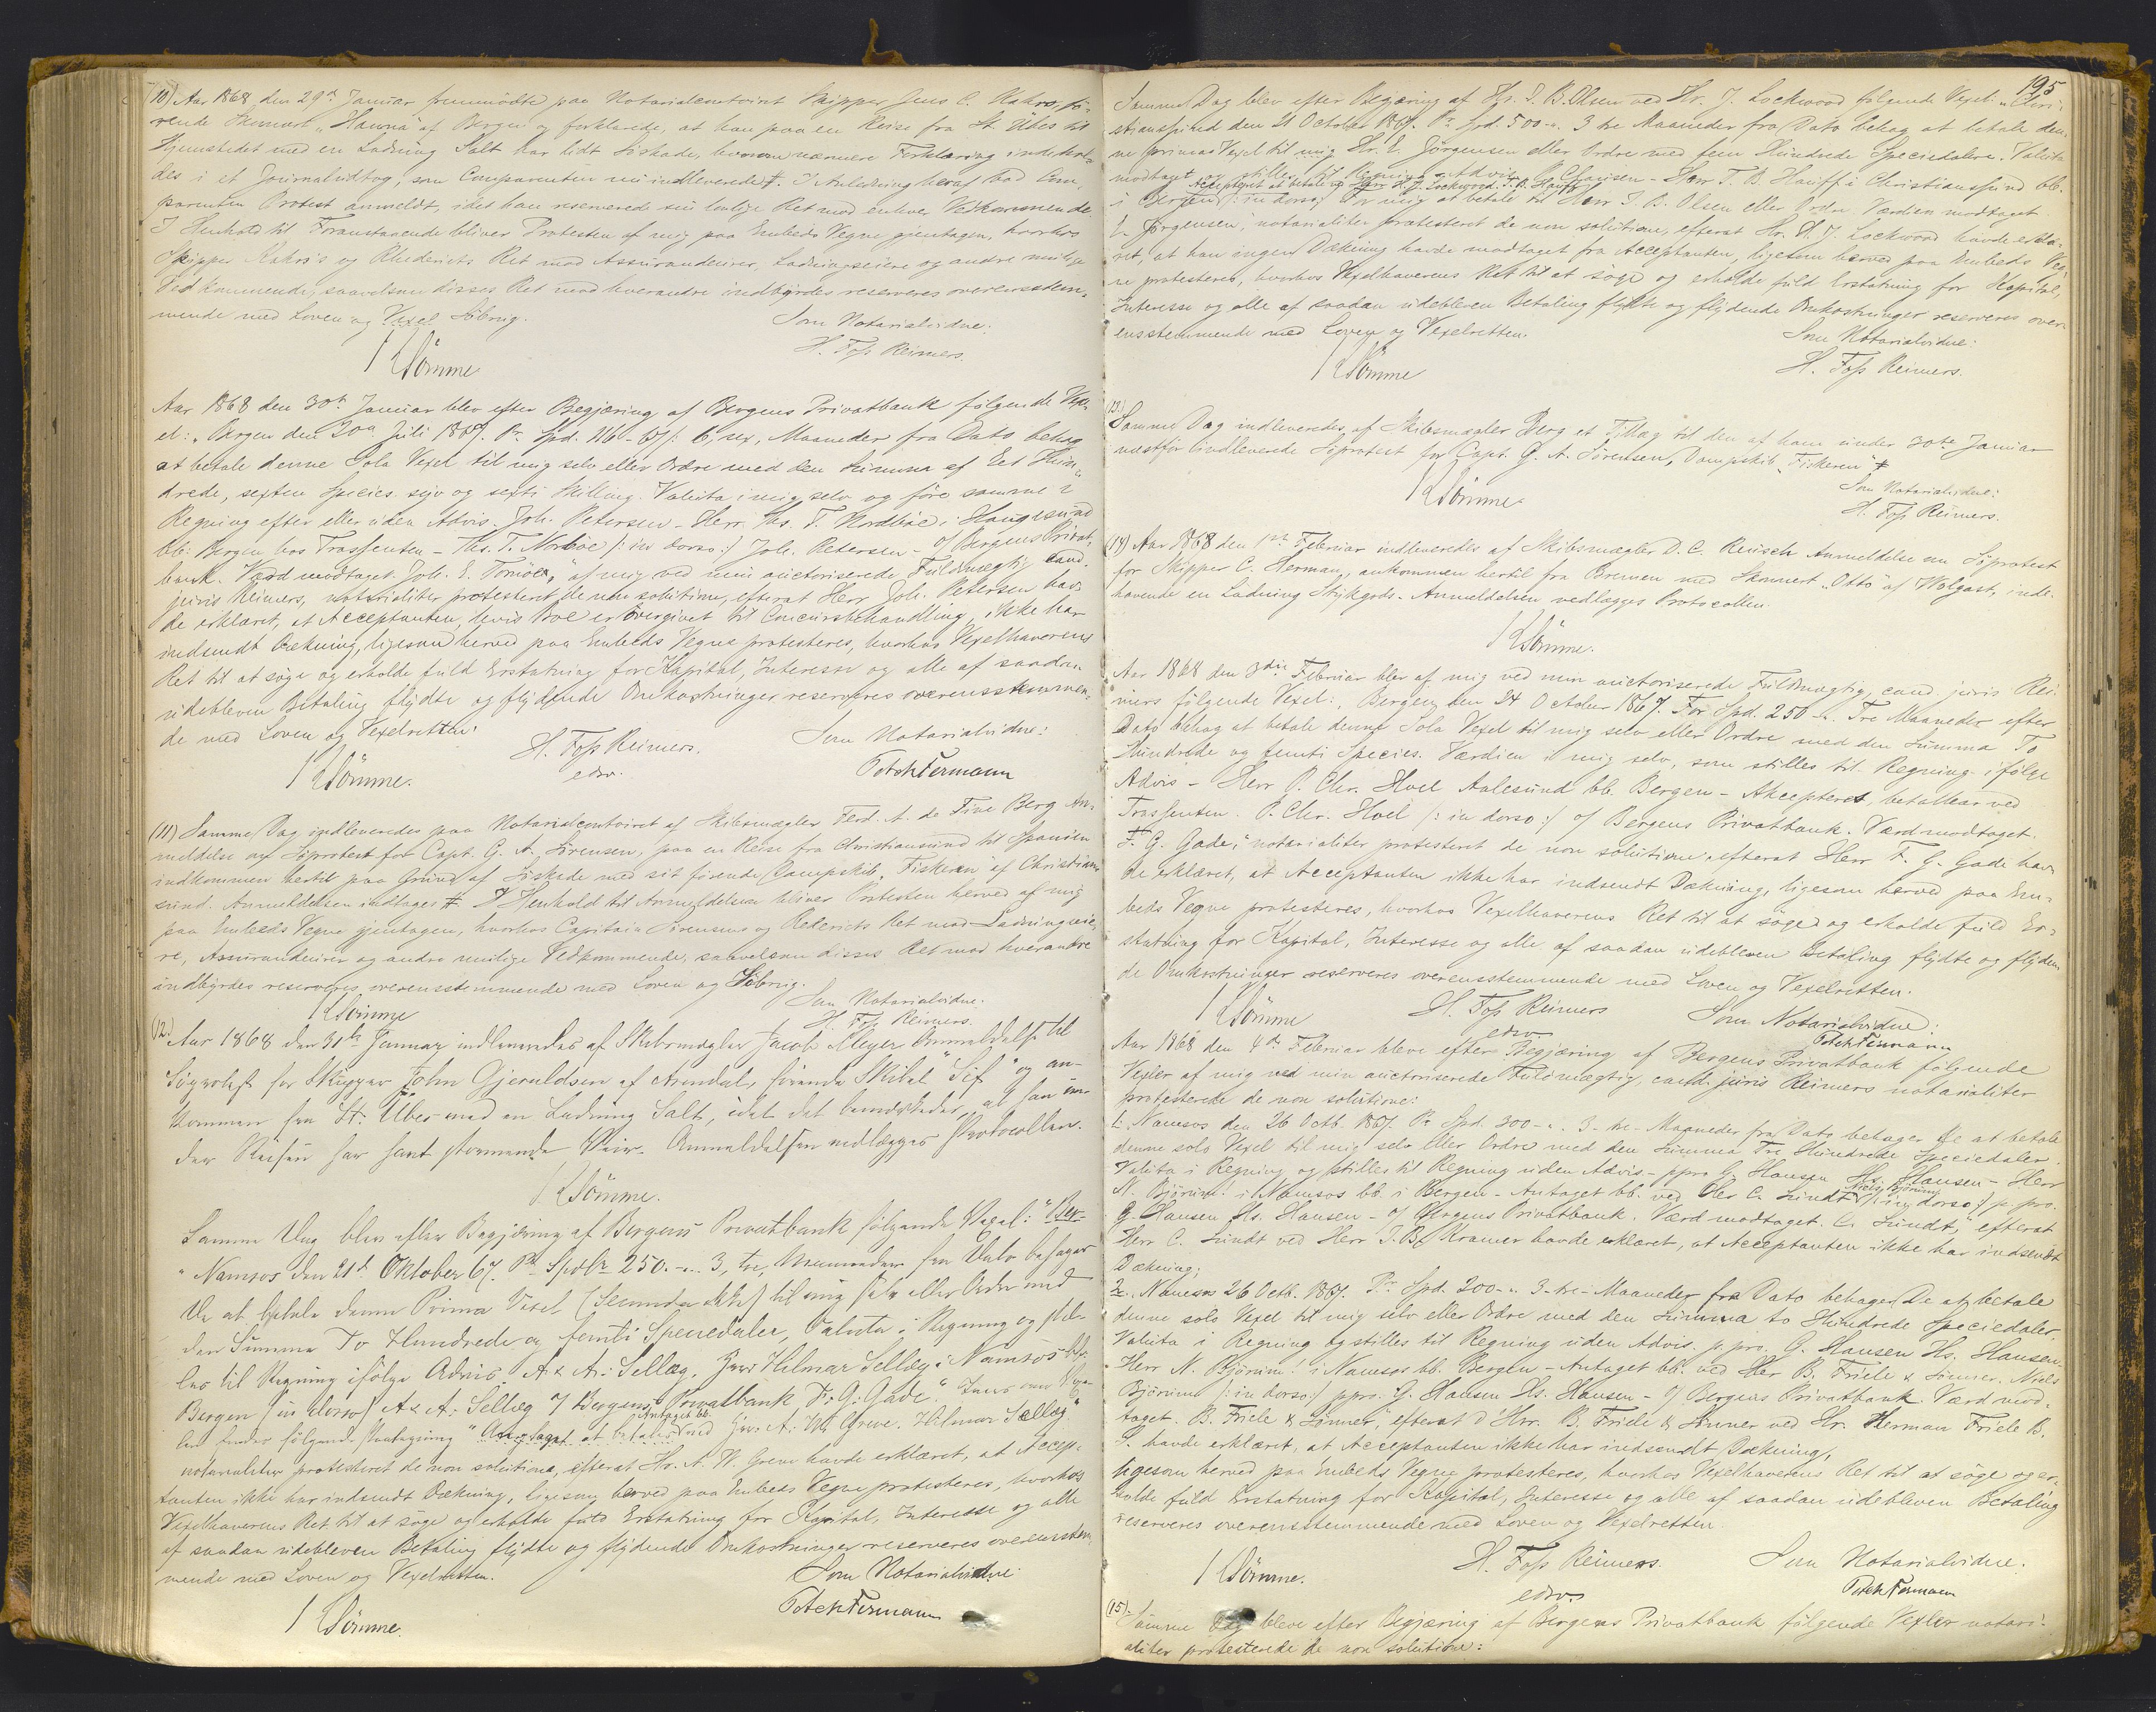 10) Aar 1868 den 29de Januar fremmödte paa Notarialcontoiret Skipper Jens C. Kahrs, fö-
rende Skonnert "Hanna" af Bergen og forklarede, at han paa en Reise fra St. Übes til
Hjemstedet med en Ladning Salt har lidt Söskade, hvorom nærmere Forklaring indehol-
des i et Journaludtog, som Comparenten nu indleverede #. I Anledning heraf bad Com-
parenten Protest anmeldt, idet han reserverede sin lovlige Ret mod enhver Vedkommende
I Henhold til Foranstaaende bliver Protesten af mig paa Embeds Vegne gjentagen, hvorhos
Skipper Kahrs's og Rhederiets Ret mod Assurandeurer, Ladningseiere og andre mulige
Vedkommende, saavelsom disses Ret mod hverandre indbyrdes reserveres overensstem-
mende med Loven og Vexel Söbrug.
Som Notarialvidne:
H. Foss Reimers.
Sömme
Aar 1868 den 30te Januar blev efter Begjæring af Bergens Privatbank følgende Vex-
el: "Bergen den 20de Juli 1867. Pr. Spd. 116-67/: 6, sex, Maaneder fra Dato behag
at betale denne Sola Vexel til mig selv eller Ordre med den Summa af Eet Hun-
drede, sexten Species syv og sexti Skilling. Valuta i mig selv og före samme i
Regning efter eller uden Advis. Joh. Petersen - Herr Ths. T. Nordböe i Haugesund
bb: Bergen hos Trassenten - Ths. T. Norböe /: in dorso :/ Joh. Petersen - o/ Bergens Privat-
bank. Værd modtaget. Joh. E. Tornöe," af mig ved min auctoriserede Fuldmægtig cand.
juris Reimers, notarialiter protesteret de non solutione, efterat Herr Joh. Petersen hav-
de erklæret, at Acceptanten, hvis Boe er overgivet til Concursbehandling, ikke har
indsendt Dækning, ligesom herved paa Embeds Vegne protesteres, hvorhos Vexelhaverens
Ret til at söge og erholde fuld Erstatning for Kapital, Interesse og alle af saadan
udebleven Betaling flydte og flydende Omkostninger reserveres overensstemmen-
de med Loven og Vexelretten.
H. Foss Reimers.
edsv.
Som Notarialvidne:
Sömme.
(11) Samme Dag indleveredes paa Notarialcontoiret af Skibsmægler Ferd. A. de Fine Berg An-
meldelse om Söprotest for Capt. G. A. Sörensen, paa en Reise fra Christiansund til Spanien
indkommen hertil paa Grund af Söskade med sit förende Dampskib "Fiskeren" af Christian-
sund. Anmeldelsen indtages #. I Henhold til Anmeldelsen bliver Protesten herved af mig
paa Embeds Vegne gjentagen, hvorhos Capitain Sörensens og Rederiets Ret mod Ladningseie-
re, Assurandeurer og andre mulige Vedkommende, saavelsom disses Ret mod hverandre
indbyrdes reserveres overensstemmende med Loven og Söbrug.
Som Notarialvidne.
H. Foss Reimers.
Sömme
(12.) Aar 1868 den 31te Januar indleveredes af Skibsmægler Jacob Meyer Anmeldelse til
Söprotest for Skipper John Gjeruldsen af Arendal, förende Skibet "Sif" og an-
kommen fra St. Übes med en Ladning Salt, idet det bemærkedes, at han un-
der Reisen har havt stormende Veir. Anmeldelsen vedlægges Protocollen.
Sömme.
Samme Dag blev efter Begjæring af Bergens Privatbank følgende Vexel: "Ber-
"Namsos den 21de Oktober 67. Pr. Spdlr 250. -.. 3, tre, Maaneder fra Dato behager
De at betale denne Prima Vexel (Secunda ikke) til mig selv eller Ordre med
den Summa To Hundrede og femti Speciedaler, Valuta i Regning og stil-
les til Regning ifølge Advis. A & A: Sellæg. Herr Hilmar Sellæg i Namsos bb.
Bergen (in dorso) A & A: Sellæg o/ Bergens Privatbank F. G. Gade."
Antaget bb.
len findes følgende Paategning "Antaget at betales ved Herr A: W. Greve. Hilmar Sellæg"
notarialiter protesteret de non solutione, efterat Hr. A. W. Greve havde erklæret, at Accep-
tanten ikke har indsendt Dækning, ligesom herved paa Embeds Vegne protesteres, hvorhos
Vexelhaverens Ret til at söge og erholde fuld Erstatning for Kapital, Interesse og alle
af saadan udebleven Betaling flydte og flydende Omkostninger reserveres overensstem-
mende med Loven og Vexelretten.
Som Notarialvidne:
Sömme.
195
Samme Dag blev efter Begjæring af Hr. J. B. Olsen ved Hr. J. Lockwood følgende Vexel: "Chri-
stianssund den 21 October 1867. Pr Spd. 500-.. 3 tre Maaneder fra Dato behag at betale den-
ne prima Vexel til mig Hr. E. Jörgensen eller Ordre med fem Hundrede Speciedaler. Valuta
modtaget og stilles til Regning Advis. - Herr T. B. Hauff i Christianssund bb.
Accepteret at betale og Herr H. J. Lockwood. T. B. Hauff
i Bergen /: in dorso :/ For mig at betale til Herr J. B. Olsen eller Ordre. Værdien modtaget
E. Jörgensen," notarialiter protesteret de non solutione, efterat Hr. H. J. Lockwood havde erklæ-
ret, at han ingen Dækning havde modtaget fra Acceptanten, ligesom herved paa Embeds Veg-
ne protesteres, hvorhos Vexelhaverens Ret til at söge og erholde fuld Erstatning for Kapital,
Interesse og alle af saadan udebleven Betaling flydte og flydende Omkostninger reserveres over-
ensstemmende med Loven og Vexelretten.
Som Notarialvidne:
H. Foss Reimers.
Sömme
(13.) Samme Dag indleveredes af Skibsmægler Berg et Tillæg til den af ham under 30te Januar
næstför indleverede Söprotest for Capt. G. A. Sörensen, Dampskib "Fiskeren" #
Som Notarialvidne:
H. Foss Reimers.
Sömme
(14) Aar 1868 den 1ste Februar indleveredes af Skibsmægler D. C. Reusch Anmeldelse om Söprotest
for Skipper C. Herman, ankommen hertil fra Bremen med Skonnert "Otto" af Wolgast, inde-
havende en Ladning Stykgods. Anmeldelsen vedlægges Protocollen.
Sömme.
Aar 1868 den 3die Februar blev af mig ved min auctoriserede Fuldmægtig, cand. juris Rei-
mers følgende Vexel: "Bergen den 24 October 1867. For Spd. 250 -.. Tre Maaneder efter
Dato behag at betale denne Sola Vexel til mig selv eller Ordre med den Summa To
Hundrede og femti Species. Værdien i mig selv, som stilles til Regning ifölge
Advis - Herr P. Chr. Hoel Aalesund bb. Bergen - Akcepteret, betalbar ved
Trassenten. P. Chr. Hoel /: in dorso :/ o/ Bergens Privatbank. Værd modtaget.
F. G. Gade," notarialiter protesteret de non solutione, efterat Herr F. G. Gade hav-
de erklæret, at Acceptanten ikke har indsendt Dækning, ligesom herved paa Em-
beds Vegne protesteres, hvorhos Vexelhaverens Ret til at söge og erholde fuld Er-
statning for Kapital, Interesse og alle af saadan udebleven Betaling flydte og flyden-
de Omkostninger reserveres overensstemmende med Loven og Vexelretten.
Sömme
H. Foss Reimers
edsv.
Som Notarialvidne:
Aar 1868 den 4de Februar bleve efter Begjæring af Bergens Privatbank følgende
Vexler af mig ved min auctoriserede Fuldmægtig, cand. juris Reimers notarialiter
protesterede de non solutione:
1. Namsos den 26 Octb. 1867. Pr Spd. 300-.. 3-tre-Maaneder fra Dato behager De at betale
denne solo Vexel til mig selv eller Ordre med den Summa Tre Hundrede Speciedaler.
Valuta i Regning og stilles til Regning uden Advis. - ppro G. Hansen Hs. Hansen - Herr
Niels Björum
N. Björum! i Namsos bb. i Bergen - Antaget bb. ved Her C. Sundt /: in dorso :/ p. pro.
G. Hansen Hs. Hansen - o/ Bergens Privatbank. Værd modtaget. C. Sundt," efterat
Herr C. Sundt ved Herr J. B. Kramer havde erklæret, at Acceptanten ikke har indsendt
Dækning;
2. Namsos 26 Octb. 1867. Pr Spd. 200-.. 3-tre-Maaneder fra Dato behager De at betale
denne solo Vexel til mig selv eller Ordre med den Summa to Hundrede Speciedaler.
Valuta i Regning og stilles til Regning uden Advis. p. pro. G. Hansen Hs. Hansen-
Herr N. Björum! i Namsos bb. Bergen - Antaget bb. ved Her B. Friele & Sönner. Niels
Björum /: in dorso :/ ppro. G. Hansen Hs. Hansen - o/ Bergens Privatbank. Værd mod-
taget. B. Friele & Sönner," efterat d'Hrr. B. Friele & Sönner ved Hr. Herman Friele B.
S. havde erklæret, at Acceptanten ikke har indsendt Dækning,
ligesom herved paa Embeds Vegne protesteres, hvorhos Vexelhaverens Ret til at söge og er-
holde fuld Erstatning for Kapital, Interesse og alle af saadan udebleven Betaling
reserveres overensstemmende med Loven og Vexelretten.
Sömme.
H. Foss Reimers.
edsv.
Som Notarialvidne.
(15). Samme Dag bleve efter Begjæring af Bergens Privatbank følgende Vexler notari-
aliter protesterede de non solutione: